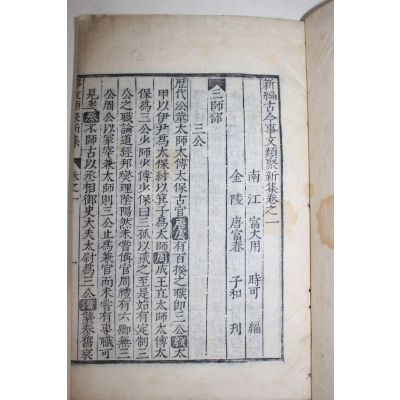 新編古今事文類聚新集卷之一
南江 富大用 時可 編
金陵 唐富春 子和 刊
三師部
三公
歷代沿革太師太傅太保古官唐虞有百揆之職卽三公殷太
甲以伊尹為太保紂以箕子為太師周成王立太師太傅太
保為三公少師少傅少保曰三孤以貳之至是始有定制三
公之職論道經邦燮理陰陽然未嘗備官周禮有六卿無三
公周公以冢宰兼太師則三公止為兼官而未嘗有專職可
見矣秦不師古以丞相御史大夫太尉為三公漢襲秦舊哀
事文類聚新集
卷之一
一